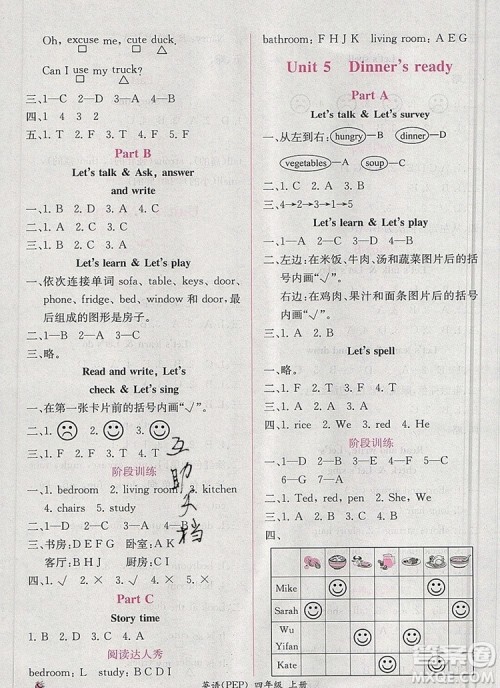 Oh, excuse me, cute duck.
Can I use my truck?
三、1—C 2—D 3—B 4—A
四、1 4 3 2
五、1. T 2. F 3. T 4. F
Part B
Let's talk & Ask, answer
and write
一、1. B 2. D 3. A 4. C
二、3 2 1 4
三、1. B 2. A 3. A
Let's learn & Let's play
一、依次连接单词 sofa, table, keys, door,
phone, fridge, bed, window and door, 最
后组成的图形是房子。
二、1—B 2—D 3—A 4—C
三、略。
Read and write, Let's
check & Let's sing
一、在第一张卡片前的括号内画“√”。
二、1. 2. 3. 4.
阶段训练
一、1. bedroom 2. living room 3. kitchen
4. chairs 5. study
二、1—D 2—A 3—B 4—C
三、书房: D E F G 卧室: A K
客厅: B H J 厨房: C I
四、1. √ 2. × 3. √ 4. √
Part C
Story time
1. B 2. A 3. B 4. A
阅读达人秀
bedroom: L M study: B C D I
bathroom: F H J K living room: A E G
Unit 5 Dinner's ready
Part A
Let's talk & Let's survey
一、从左到右: hungry—B dinner—D
vegetables—A soup—C
二、1. C 2. D 3. B 4. A
三、4→2→1→3→5
Let's learn & Let's play
二、左边: 在米饭、牛肉、汤和蔬菜图片后的
括号内画“√”。
右边: 在鸡肉、果汁和面条图片后的括
号内画“√”。
三、1. A 2. C 3. A 4. B
Let's spell
一、略。
二、1. F 2. T 3. F 4. T 5. T
三、1. rice 2. We 3. red 4. He
阶段训练
一、1. C 2. A 3. A 4. B 5. A
二、1. Ted, red, pen 2. She, We
三、1—C 2—A 3—D 4—B
四、
Mike
Sarah
Wu
Yifan
Kate
互助文档
英语(PEP) 四年级 上册